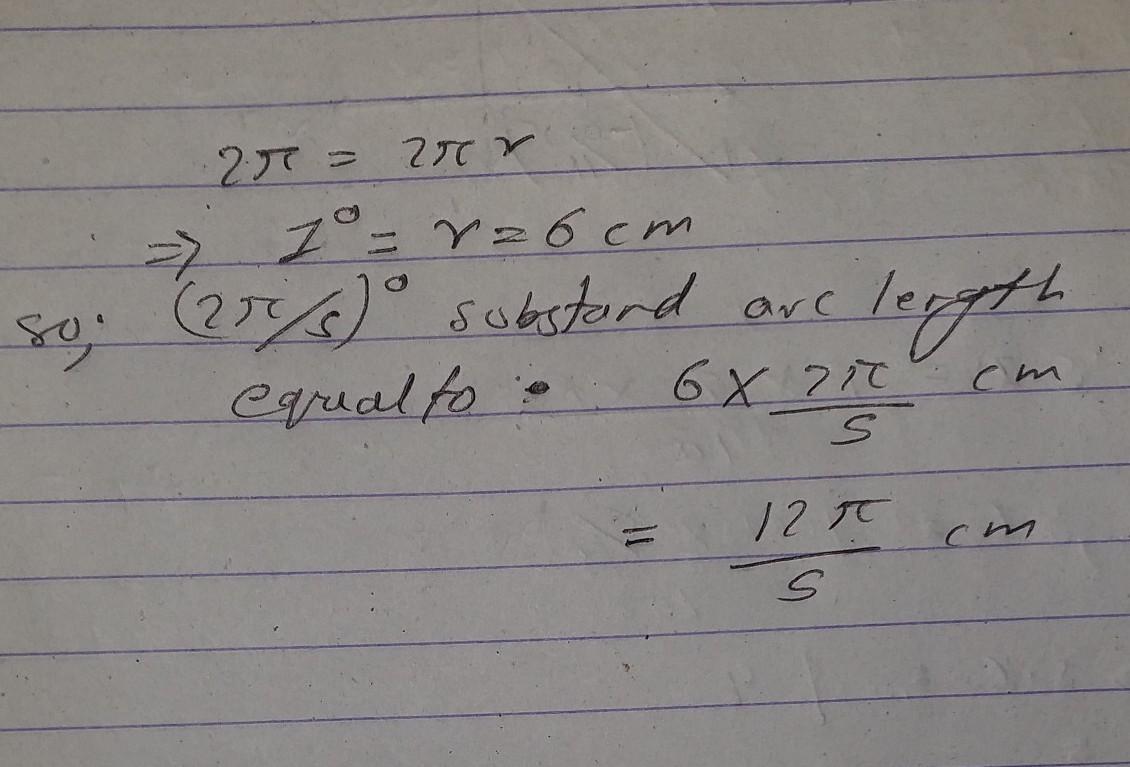 2π = 2πr
⇒ 1° = r = 6 cm
so; (2π/5)° substand arc length
equal to : 6 × 2π/5 cm
= 12π/5 cm